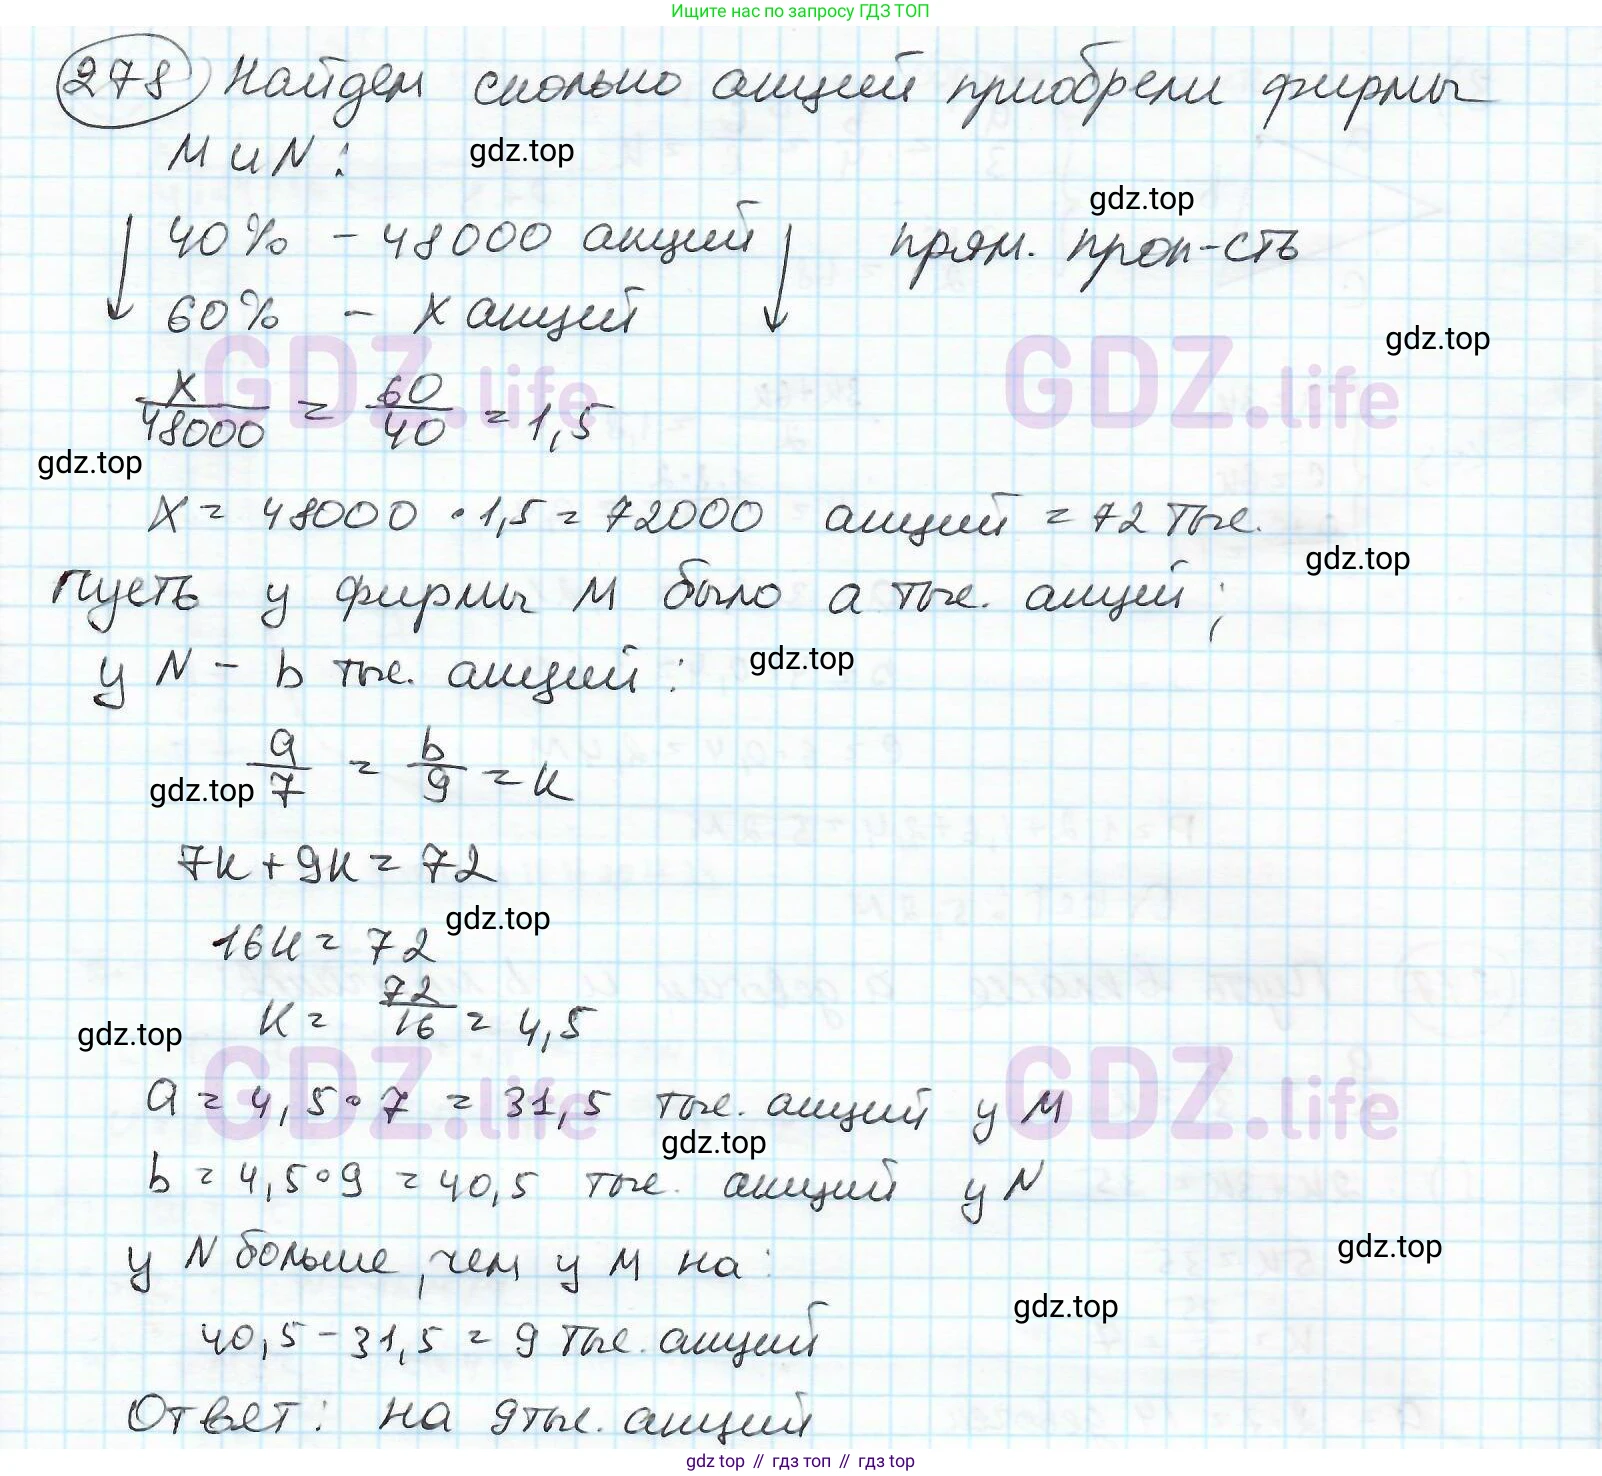 Ищите нас по запросу ГДЗ ТОП
278 Найдем сколько акций приобрели фирмы
М и N:
gdz.top
gdz.top
40% - 48000 акций прям. проп-сть
60% - х акций
gdz.top
GDZ.life GDZ.life
х/48000 = 60/40 = 1,5
gdz.top
х = 48000 · 1,5 = 72000 акций = 72 тыс.
gdz.top
Пусть у фирмы М было а тыс. акций;
у N - b тыс. акций:
gdz.top
a/7 = b/9 = k
gdz.top
7k + 9k = 72
gdz.top
16k = 72
k = 72/16 = 4,5
gdz.top
GDZ.life GDZ.life
a = 4,5 · 7 = 31,5 тыс. акций у М
gdz.top
b = 4,5 · 9 = 40,5 тыс. акций у N
у N больше, чем у М на:
gdz.top
gdz.top
40,5 - 31,5 = 9 тыс. акций
Ответ: на 9 тыс. акций
gdz top // гдз топ // гдз top